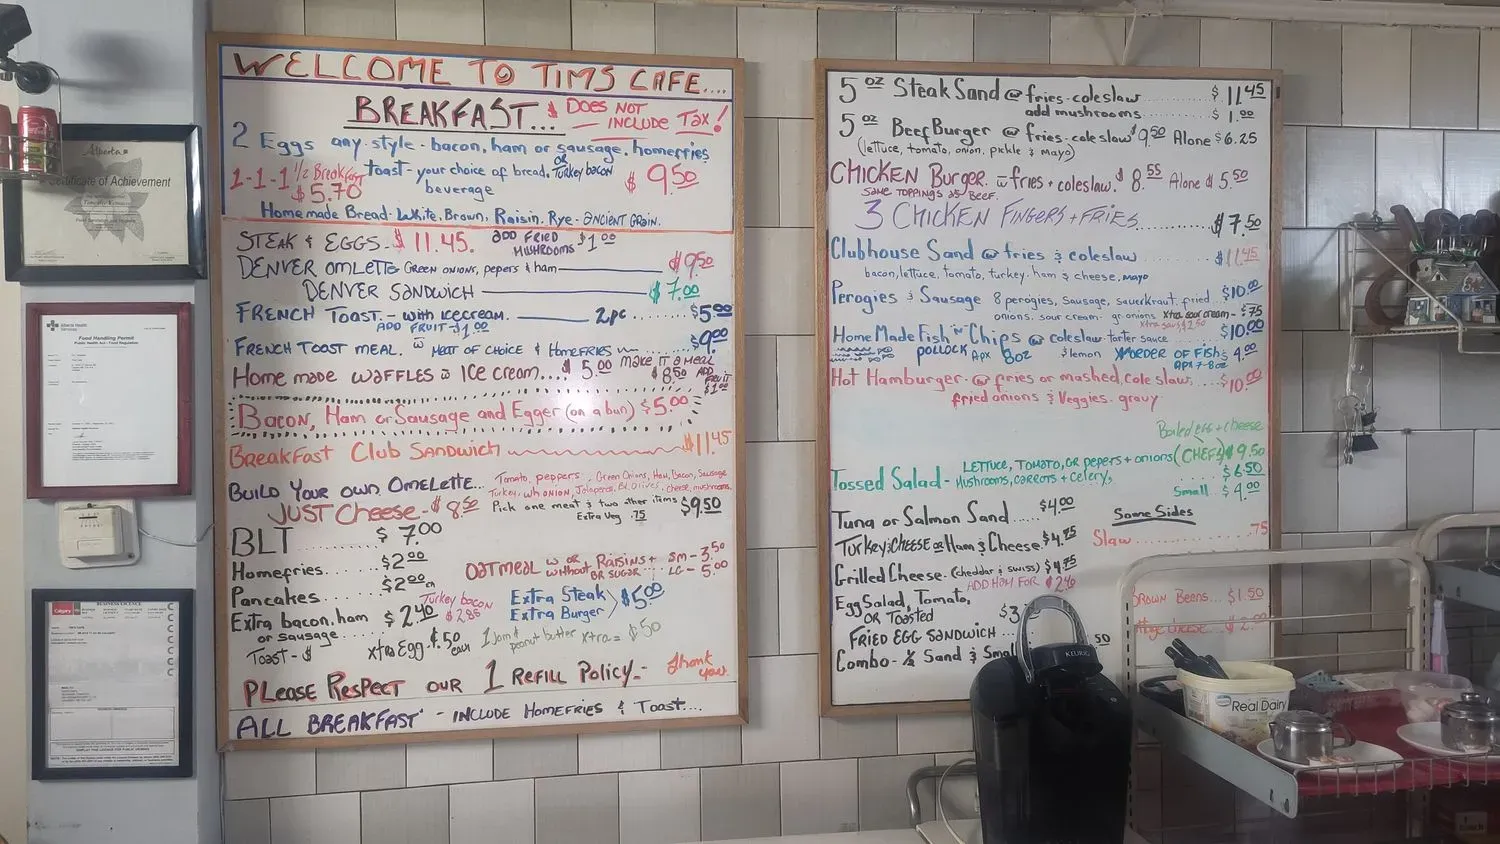 WELCOME TO TIMS CAFE....
BREAKFAST... $ DOES NOT INCLUDE TAX!
2 Eggs any style - bacon, ham or sausage, homefries
toast - your choice of bread. or Turkey bacon
beverage $ 9.50
1-1-1 1/2 Breakfast
$5.70
Homemade Bread - White, Brown, Raisin, Rye - ANCIENT GRAIN.
STEAK & EGGS - $11.45. ADD FRIED MUSHROOMS $1.00
DENVER OMLETTE GREEN ONIONS, pepers & ham $9.50
DENVER SANDWICH $7.00
FRENCH TOAST. - WITH ICECREAM. 2pc ...... $5.00
ADD FRUIT - $1.00
FRENCH TOAST MEAL. w MEAT OF CHOICE & HOMEFRIES $9.00
HOME MADE WAFFLES w ICE CREAM.... $5.00 MAKE IT A MEAL $8.50 ADD FRUIT $1.00
BACON, HAM or SAUSAGE and EGGER (on a bun) $5.00
BREAKFAST CLUB SANDWICH $11.45
BUILD YOUR OWN OMELETTE... Tomato, peppers, Green Onions, Ham, Bacon, Sausage
Turkey, wh onion, Jalapeno, Bl. Olives, cheese, mushrooms.
JUST CHEESE - $8.50 Pick one meat & two other items $9.50
Extra Veg .75
BLT ........ $ 7.00
Homefries... $2.00
Pancakes.... $2.00
OATMEAL w OR without RAISINS + OR SUGAR... SM - 3.50
LG - 5.00
Extra bacon, ham $ 2.40 Turkey bacon $2.85
or sausage....
Extra Steak
Extra Burger $5.00
TOAST - $ xtra Egg - $.50 each 1 Jam & peanut butter xtra = $.50
PLEASE RESPECT OUR 1 REFILL POLICY - Thank you.
ALL BREAKFAST - INCLUDE HOMEFRIES & TOAST...
5 oz Steak Sand @ fries - coleslaw .......... $ 11.45
add mushrooms ........ $ 1.00
5 oz Beef Burger @ fries - coleslaw $9.50 Alone $6.25
(lettuce, tomato, onion, pickle & mayo)
CHICKEN Burger. w fries + coleslaw. $8.55 Alone $5.50
SAME TOPPINGS AS BEEF.
3 CHICKEN FINGERS + FRIES........... $7.50
Clubhouse Sand @ fries & coleslaw ...... $11.45
bacon, lettuce, tomato, turkey, ham & cheese, mayo
Perogies & Sausage 8 perogies, sausage, sauerkraut, fried $10.00
onions, sour cream - gr. onions xtra sour cream - $.75
xtra saus $2.50
Home Made Fish 'N' Chips @ coleslaw - tarter sauce $10.00
POLLOCK Apx 8oz & lemon XORDER OF FISH $4.00
Apx 7-8oz
Hot Hamburger - @ fries or mashed, cole slaw... $10.00
fried onions & Veggies - gravy
Boiled egg + cheese
Tossed Salad - LETTUCE, TOMATO, GR pepers + onions (CHEFS) $9.50
MUSHROOMS, CARROTS + celery, $6.50
Small.. $4.00
Tuna or Salmon Sand..... $4.00
Some Sides
Turkey & CHEESE or Ham & Cheese $4.75
Slaw .75
Grilled Cheese - (cheddar & swiss) $4.75
ADD HAM FOR $2.40
Egg Salad, Tomato,
OR TOASTED $3
BROWN Beans... $1.50
FRIED EGG SANDWICH ...
Combo - 1/2 Sand & Smal 50
Alberta
Certificate of Achievement
Alberta Health Services
Food Handling Permit
Calgary
BUSINESS LICENCE
KEURIG
Real Dairy